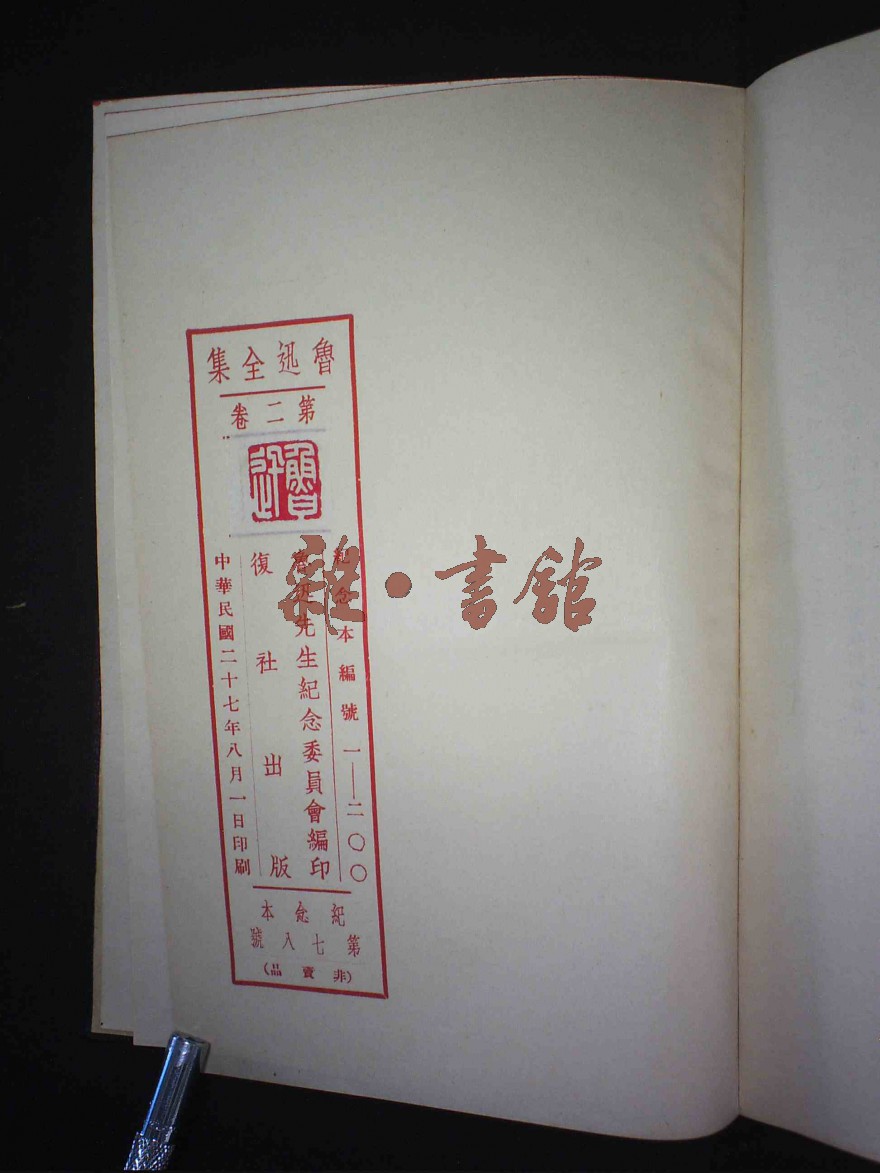 魯迅全集
第二卷
魯迅
紀念本編號一——二〇〇
魯迅先生紀念委員會編印
復社出版
中華民國二十七年八月一日印刷
紀念本
第七八號
(非賣品)
雜·書館